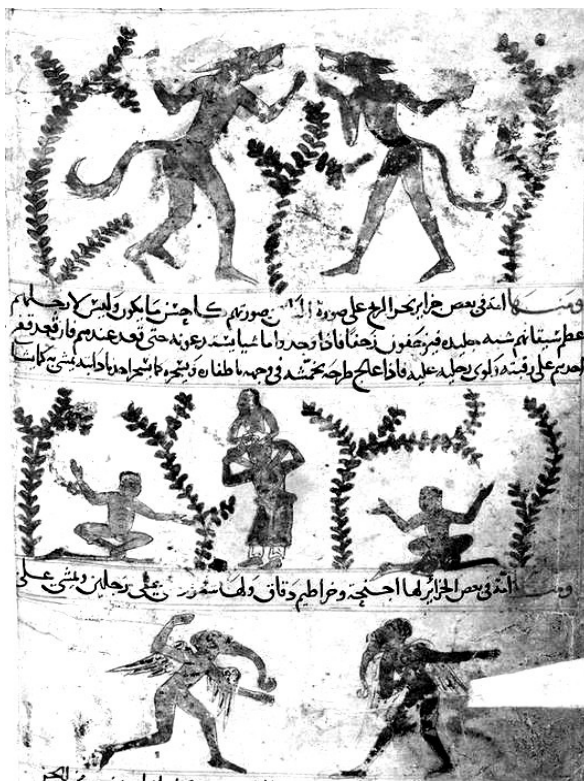 ومنها امة في بعض جزاير بحر الزنج على صورة الناس صورتهم كاحسن ما يكون وليس لارجلهم
عظم شبه جليدة فيزحفون زحفا فاذا وجدوا ماشيا حتى قعد عندهم فاذا قعد قفز
احدهم على رقبته ولوى رجليه عليه فاذا عالج طرحه يخمشه في وجهه باظفاره احدنا دابته يمشي به كما شا
ومنها امة في بعض الجزاير لها اجنحة وخراطيم دقاق ولها على رجلين ويمشي على